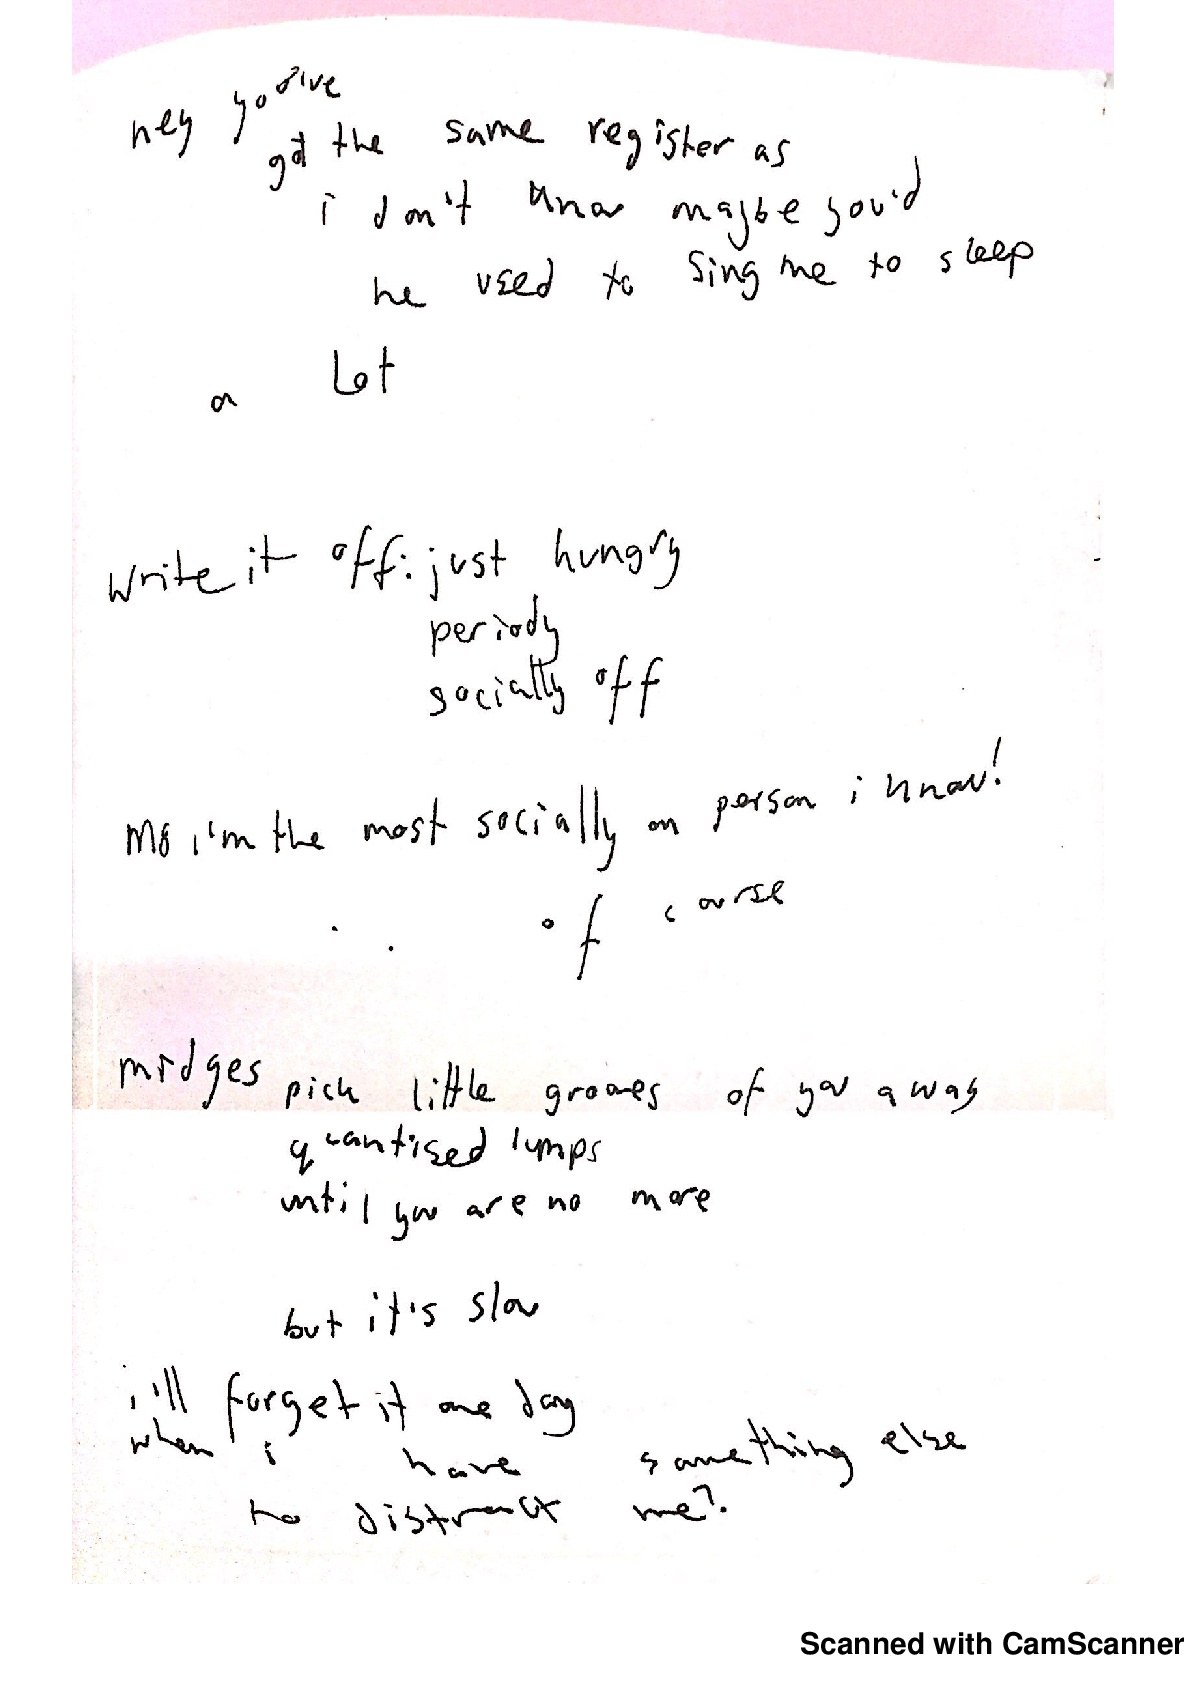 hey you've
got the same register as
i don't know maybe you'd
he used to sing me to sleep
a lot
write it off: just hungry
periody
socially off
i'm the most socially on person i know!
. . of course
midges pick little grooves of you away
quantised lumps
until you are no more
but it's slow
i'll forget it one day
when i have something else
to distract me?.
Scanned with CamScanner